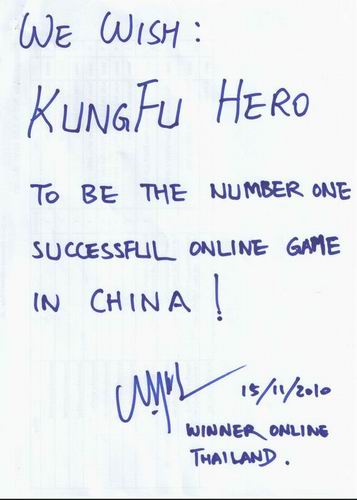 WE WISH :
KUNGFU HERO
TO BE THE NUMBER ONE
SUCCESSFUL ONLINE GAME
IN CHINA !
15/11/2010
WINNER ONLINE
THAILAND.